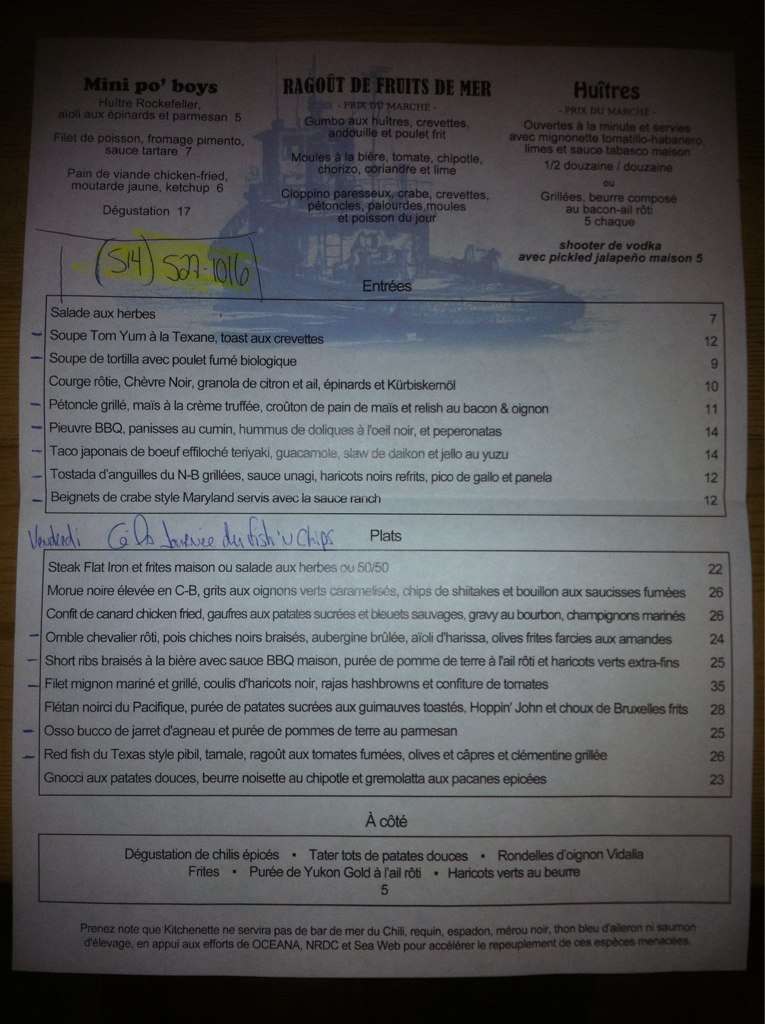 Mini po' boys
Huître Rockefeller,
aïoli aux épinards et parmesan 5
Filet de poisson, fromage pimento,
sauce tartare 7
Pain de viande chicken-fried,
moutarde jaune, ketchup 6
Dégustation 17
RAGOÛT DE FRUITS DE MER
- PRIX DU MARCHE -
Gumbo aux huîtres, crevettes,
andouille et poulet frit
Moules à la bière, tomate, chipotle,
chorizo, coriandre et lime
Cioppino paresseux, crabe, crevettes,
pétoncles, palourdes,moules
et poisson du jour
Huîtres
- PRIX DU MARCHE -
Ouvertes à la minute et servies
avec mignonette tomatillo-habanero,
limes et sauce tabasco maison
1/2 douzaine / douzaine
ou
Grillées, beurre composé
au bacon-ail rôti
5 chaque
shooter de vodka
avec pickled jalapeño maison 5
(514) 527-1016
Entrées
Salade aux herbes 7
Soupe Tom Yum à la Texane, toast aux crevettes 12
Soupe de tortilla avec poulet fumé biologique 9
Courge rôtie, Chèvre Noir, granola de citron et ail, épinards et Kürbiskernöl 10
Pétoncle grillé, maïs à la crème truffée, croûton de pain de maïs et relish au bacon & oignon 11
Pieuvre BBQ, panisses au cumin, hummus de doliques à l'oeil noir, et peperonatas 14
Taco japonais de boeuf effiloché teriyaki, guacamole, slaw de daikon et jello au yuzu 14
Tostada d'anguilles du N-B grillées, sauce unagi, haricots noirs refrits, pico de gallo et panela 12
Beignets de crabe style Maryland servis avec la sauce ranch 12
Vendredi Journée du fish 'n Chips
Plats
Steak Flat Iron et frites maison ou salade aux herbes ou 50/50 22
Morue noire élevée en C-B, grits aux oignons verts caramelisés, chips de shiitakes et bouillon aux saucisses fumées 26
Confit de canard chicken fried, gaufres aux patates sucrées et bleuets sauvages, gravy au bourbon, champignons marinés 26
Omble chevalier rôti, pois chiches noirs braisés, aubergine brûlée, aïoli d'harissa, olives frites farcies aux amandes 24
Short ribs braisés à la bière avec sauce BBQ maison, purée de pomme de terre à l'ail rôti et haricots verts extra-fins 25
Filet mignon mariné et grillé, coulis d'haricots noir, rajas hashbrowns et confiture de tomates 35
Flétan noirci du Pacifique, purée de patates sucrées aux guimauves toastés, Hoppin' John et choux de Bruxelles frits 28
Osso bucco de jarret d'agneau et purée de pommes de terre au parmesan 25
Red fish du Texas style pibil, tamale, ragoût aux tomates fumées, olives et câpres et clémentine grillée 26
Gnocci aux patates douces, beurre noisette au chipotle et gremolatta aux pacanes epicées 23
À côté
Dégustation de chilis épicés • Tater tots de patates douces • Rondelles d'oignon Vidalia
Frites • Purée de Yukon Gold à l'ail rôti • Haricots verts au beurre
5
Prenez note que Kitchenette ne servira pas de bar de mer du Chili, requin, espadon, mérou noir, thon bleu d'aileron ni saumon
d'élevage, en appui aux efforts de OCEANA, NRDC et Sea Web pour accélérer le repeuplement de ces espèces menacées.